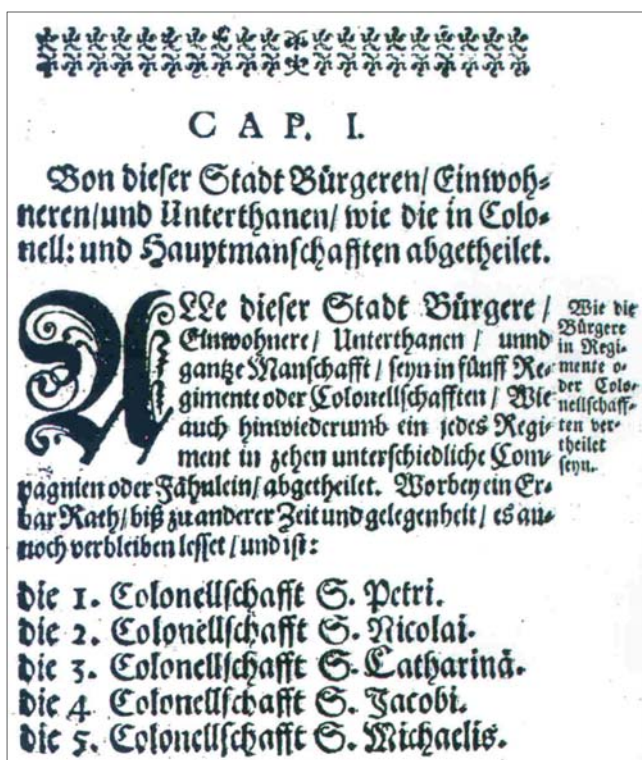 CAP. I.
Von dieser Stadt Bürgeren/ Einwoh-
neren/und Unterthanen/ wie die in Colo-
nell: und Hauptmanschafften abgetheilet.
ALLe dieser Stadt Bürgere /
Einwohnere/ Unterthanen / unnd
gantze Manschafft / seyn in fünff Re-
gimente oder Colonellschafften / Wie
auch hinwiederumb ein jedes Regi-
ment in zehen unterschiedliche Com-
pagnien oder Fähnlein/ abgetheilet. Worbey ein Er-
bar Rath/ biß zu anderer Zeit und gelegenheit / es an-
noch verbleiben lesset / und ist:
Wie die
Bürgere
in Regi-
mente o-
der Colo-
nellschaff-
ten ver-
theilet
seyn.
die 1. Colonellschafft S. Petri.
die 2. Colonellschafft S. Nicolai.
die 3. Colonellschafft S. Catharinā.
die 4 Colonellschafft S. Jacobi.
die 5. Colonellschafft S. Michaelis.